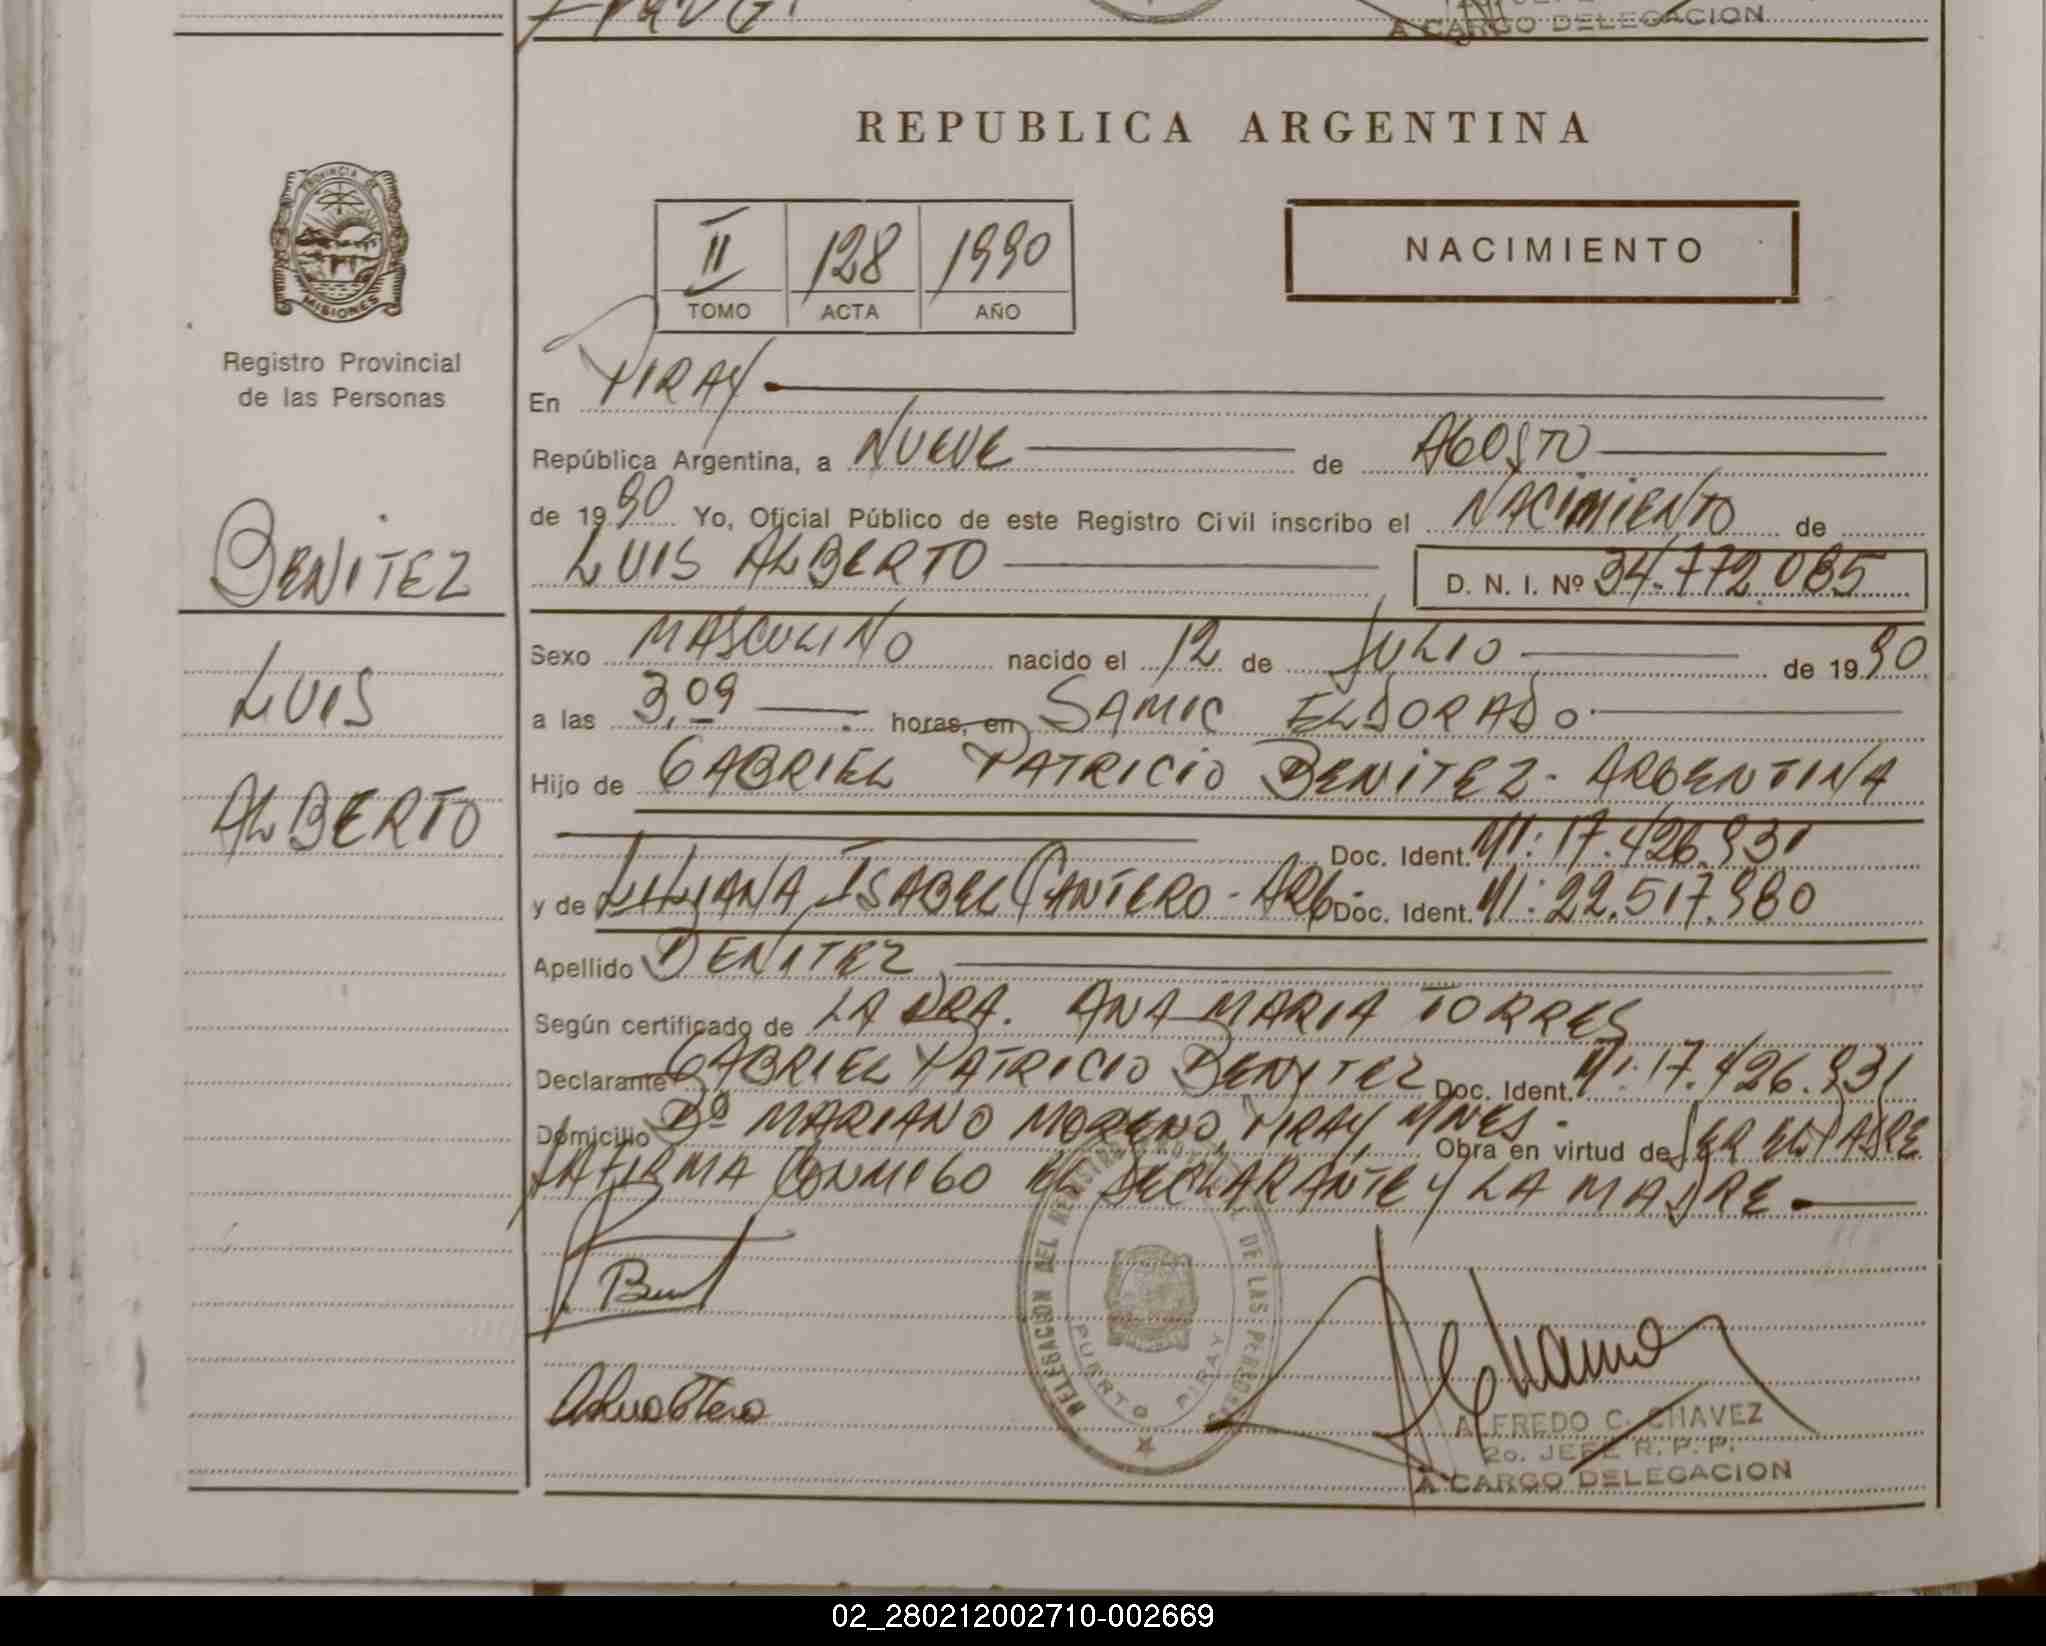 A CARGO DELEGACION
PROVINCIA DE
MISIONES
Registro Provincial
de las Personas
BENITEZ
LUIS
ALBERTO
REPUBLICA ARGENTINA
II 128 1990
TOMO ACTA AÑO
NACIMIENTO
En PIRAY
República Argentina, a NUEVE de AGOSTO
de 1990 Yo, Oficial Público de este Registro Civil inscribo el NACIMIENTO de
LUIS ALBERTO D. N. I. Nº 34.772.085
Sexo MASCULINO nacido el 12 de JULIO de 1990
a las 3,09 horas, en SAMIC ELDORADO
Hijo de GABRIEL PATRICIO BENITEZ - ARGENTINA
Doc. Ident. MI: 17.426.931
y de LILIANA ISABEL CANTERO - ARG. Doc. Ident. MI: 22.517.980
Apellido BENITEZ
Según certificado de LA DRA. ANA MARIA TORRES
Declarante GABRIEL PATRICIO BENITEZ Doc. Ident. MI: 17.426.931
Domicilio Bº MARIANO MORENO, PIRAY, MNES. Obra en virtud de SER EL PADRE
LA FIRMA CONMIGO EL DECLARANTE Y LA MADRE
DELEGACION DEL REGISTRO PROVINCIAL DE LAS PERSONAS
PUERTO PIRAY
ALFREDO C. CHAVEZ
2o. JEFE R. P. P.
A CARGO DELEGACION
02_280212002710-002669